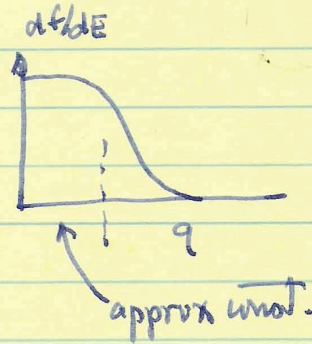 df/dE
q
approx const.